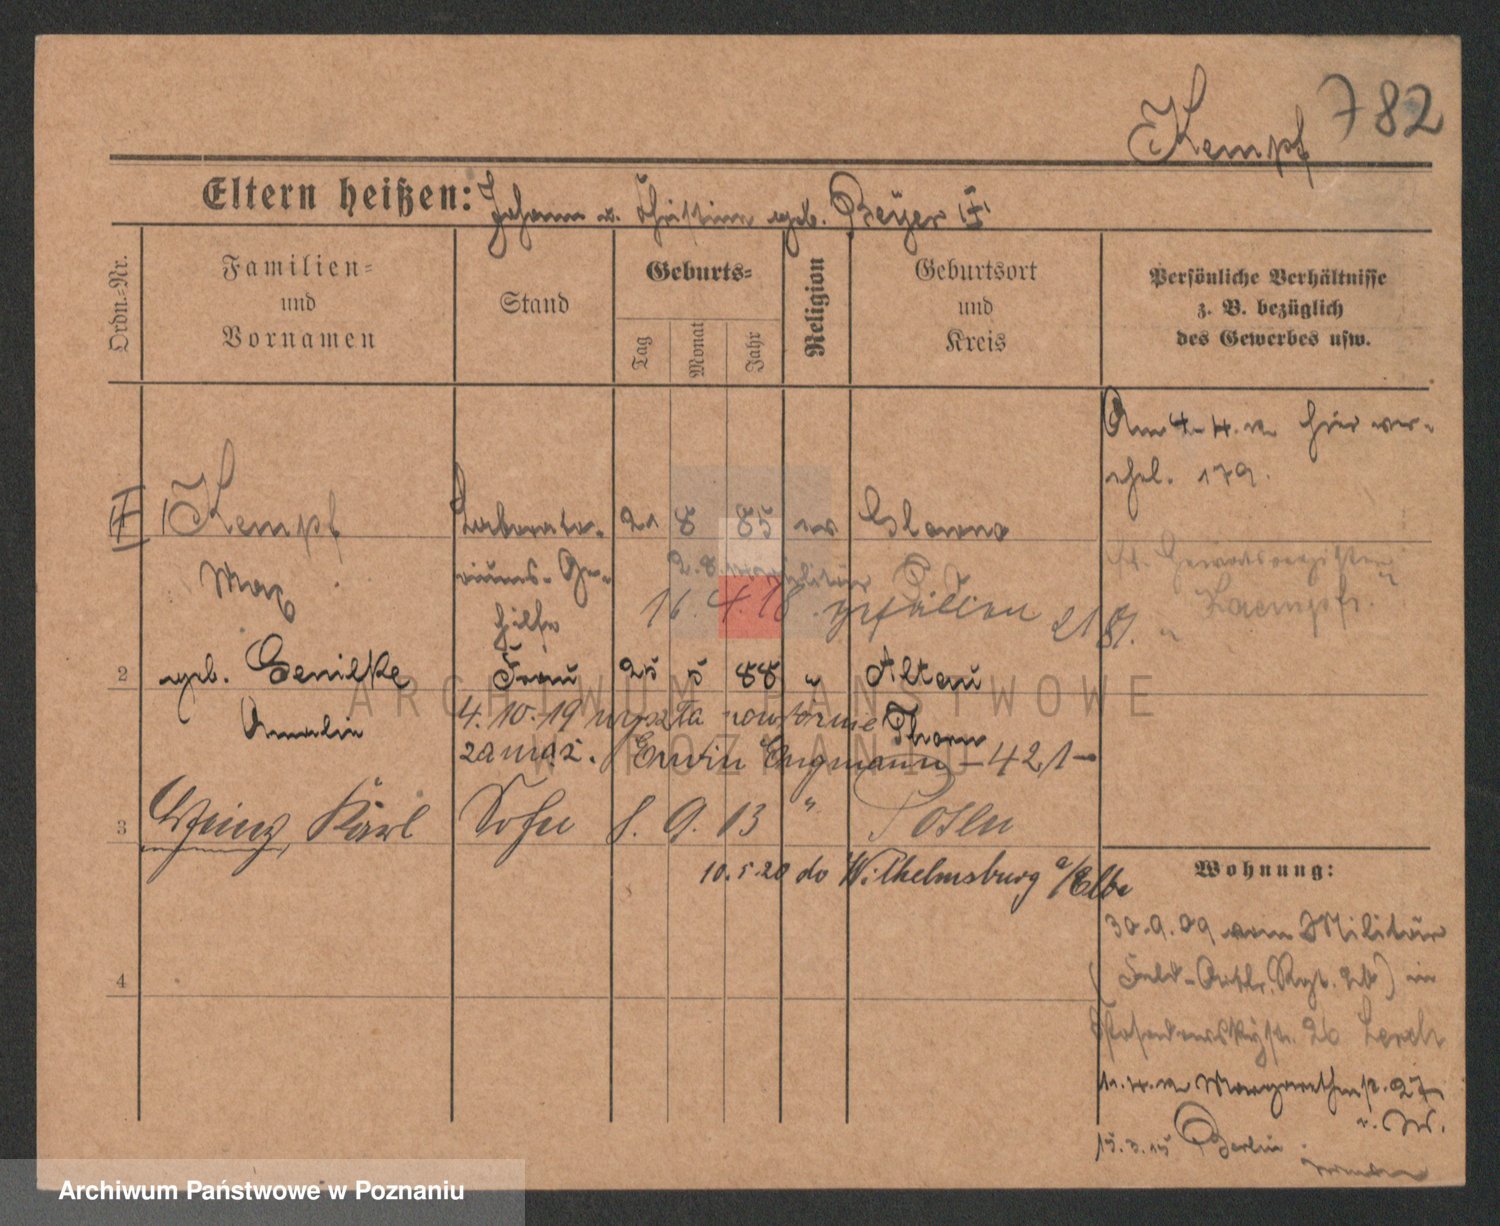 Kempf 782
Eltern heißen: Johann u. Christine geb. Beyer
Ordn.-Nr.
Familien-
und
Vornamen
Stand
Geburts-
Tag
Monat
Jahr
Religion
Geburtsort
und
Kreis
Persönliche Verhältnisse
z. B. bezüglich
des Gewerbes usw.
Am 4.4. hier ver-
ehel. 179.
1 Kempf
Max
Laborato-
riums-Ge-
hilfe
21 8 85 ev Glowno
P.
16.4.18 gefallen
Kaempf.
2
geb. Genilke
Amalie
Frau
25 5 88 " Altau
Thorn
4.10.19 wyszła powtórnie
zamąż. Erwin Engmann - 421 -
3
Heinz, Karl
Sohn
8. 9. 13 " Posen
10.5.20 do Wilhelmsburg a/Elbe
4
Wohnung:
30.9.09 vom Militär
(Feld-Artlr. Rgt.) in
26
Margarethenstr. 27
15.3.15 Berlin
ARCHIWUM PAŃSTWOWE
W POZNANIU
Archiwum Państwowe w Poznaniu